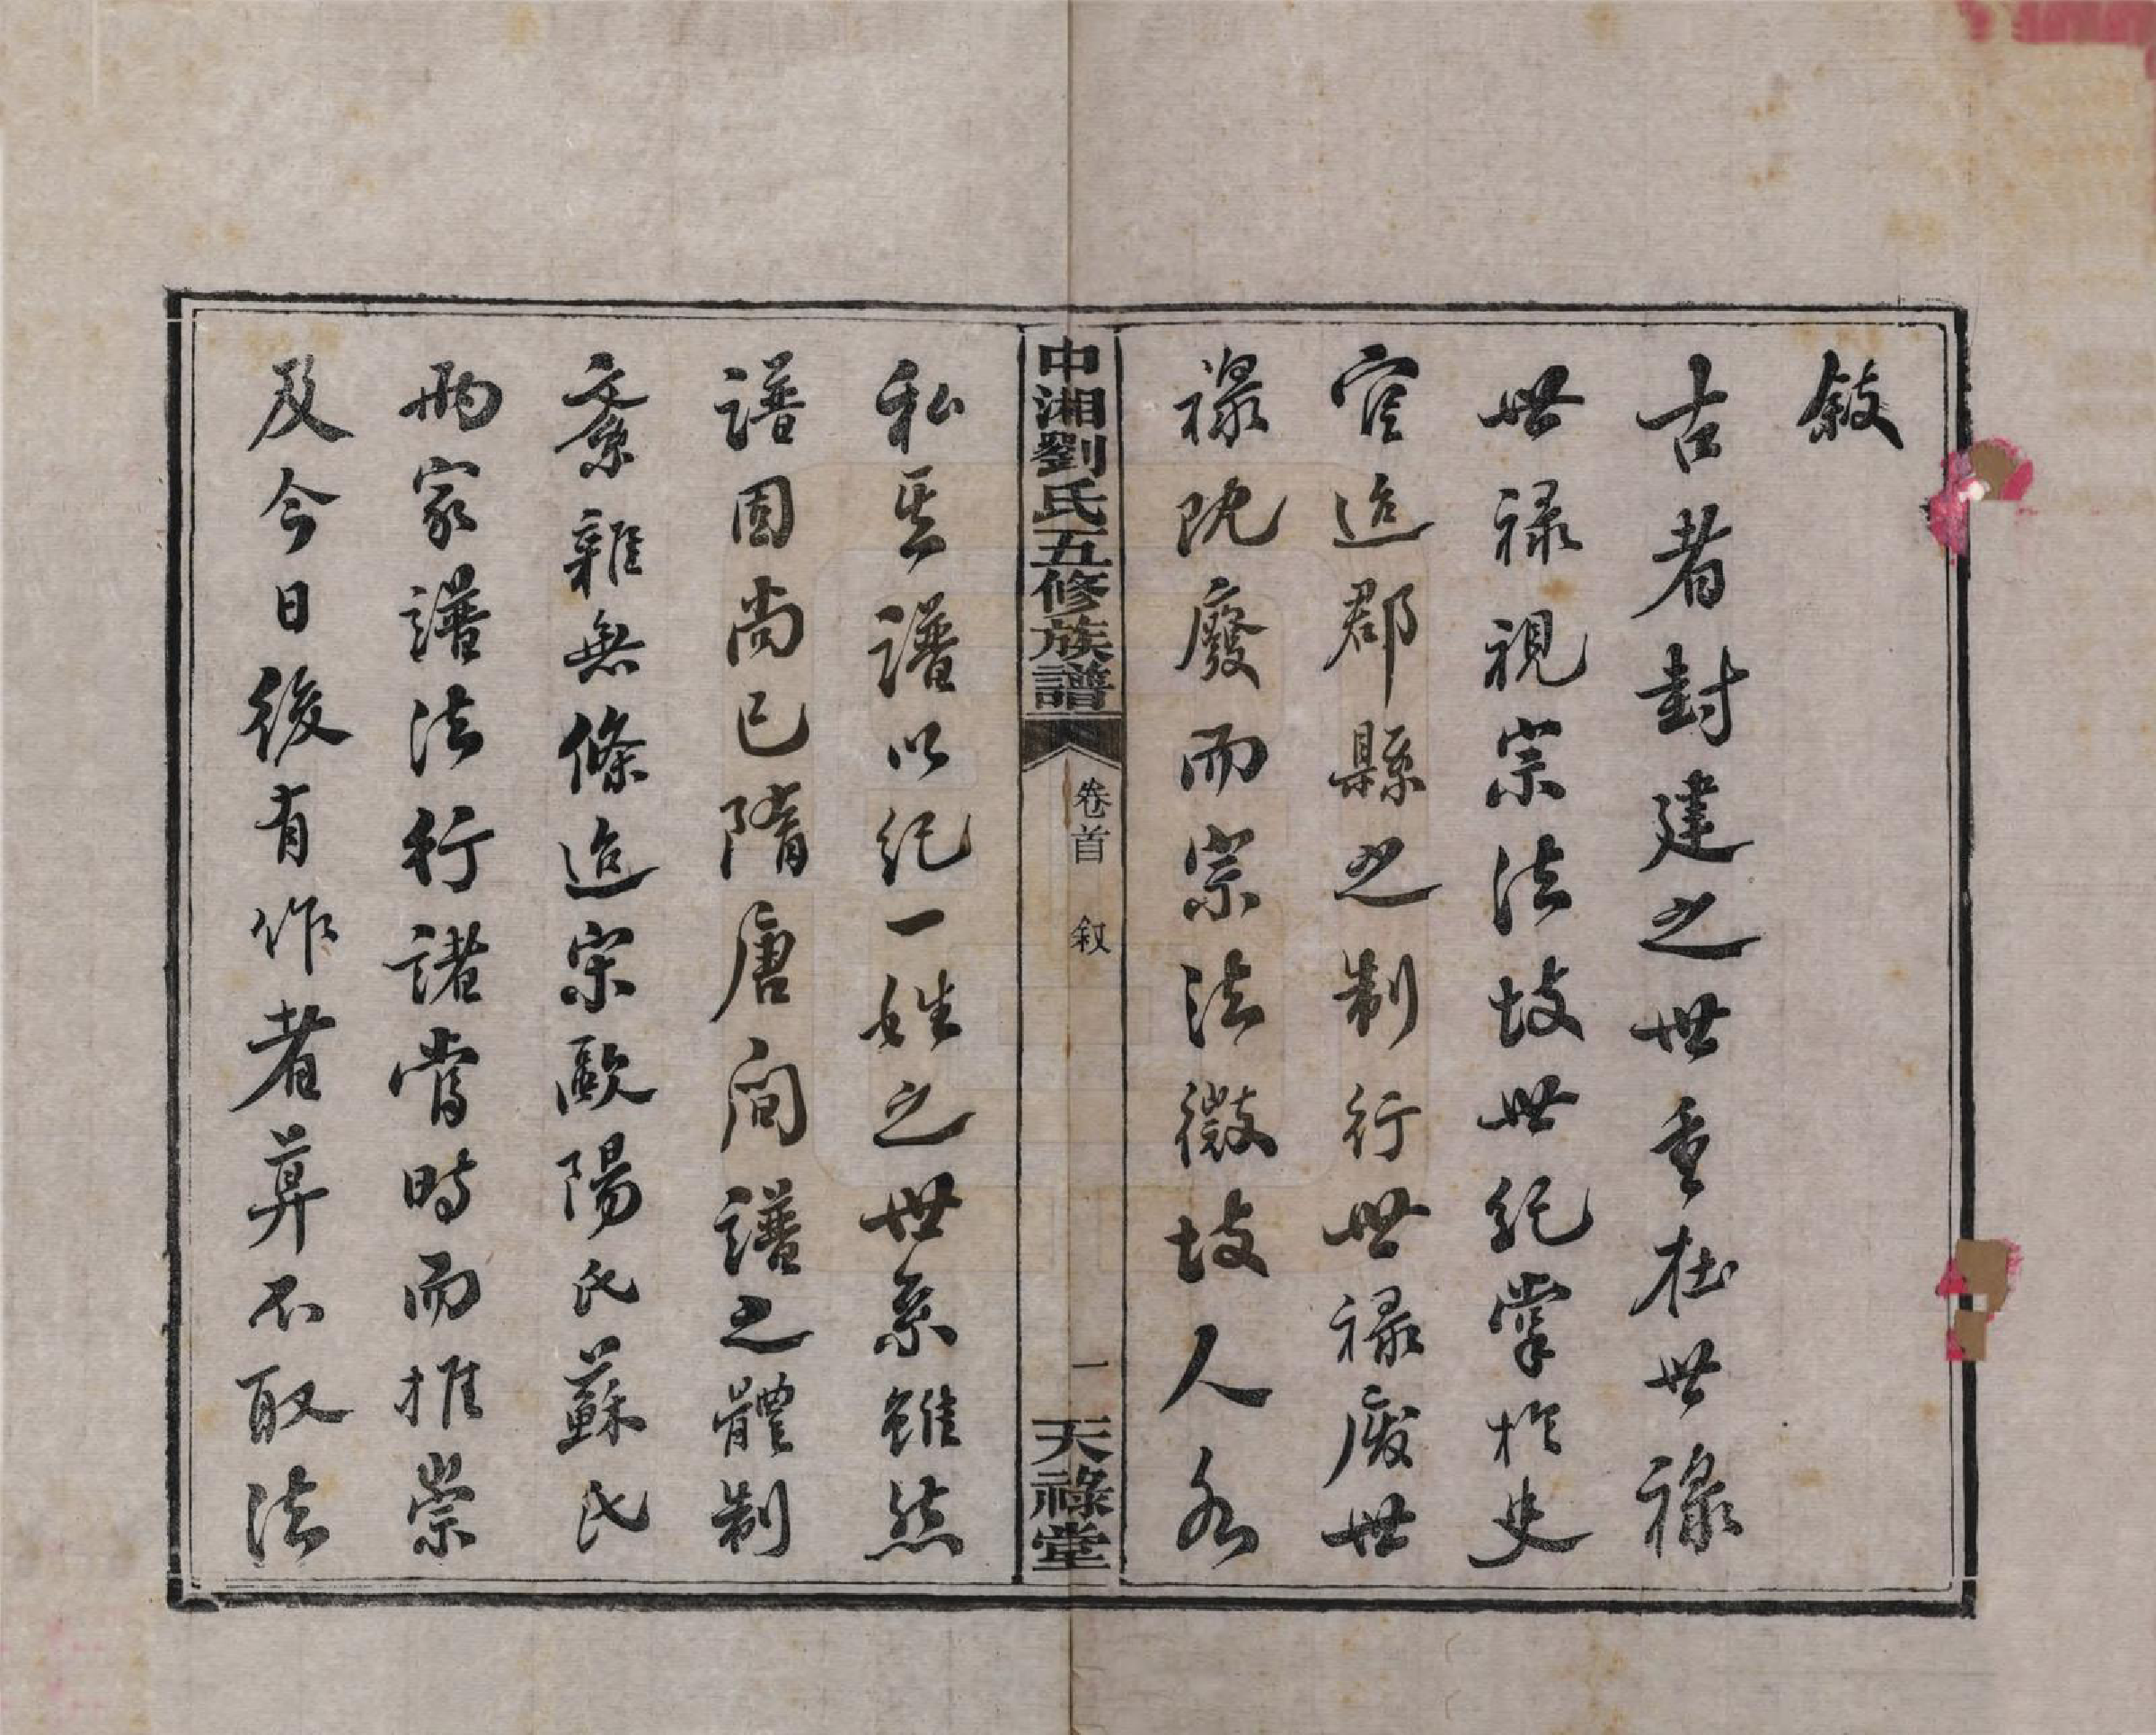 敘
古者封建之世重在世祿
世祿視宗法故世紀掌於史
官迨郡縣之制行世祿廢世
祿既廢而宗法微故人各
私其譜以紀一姓之世系雖然
譜固尚已隋唐間譜之體制
紊雜無條迨宋歐陽氏蘇氏
兩家譜法行諸當時而推崇
及今日後有作者莫不取法
中湘劉氏五修族譜
卷首 敘
一
天祿堂